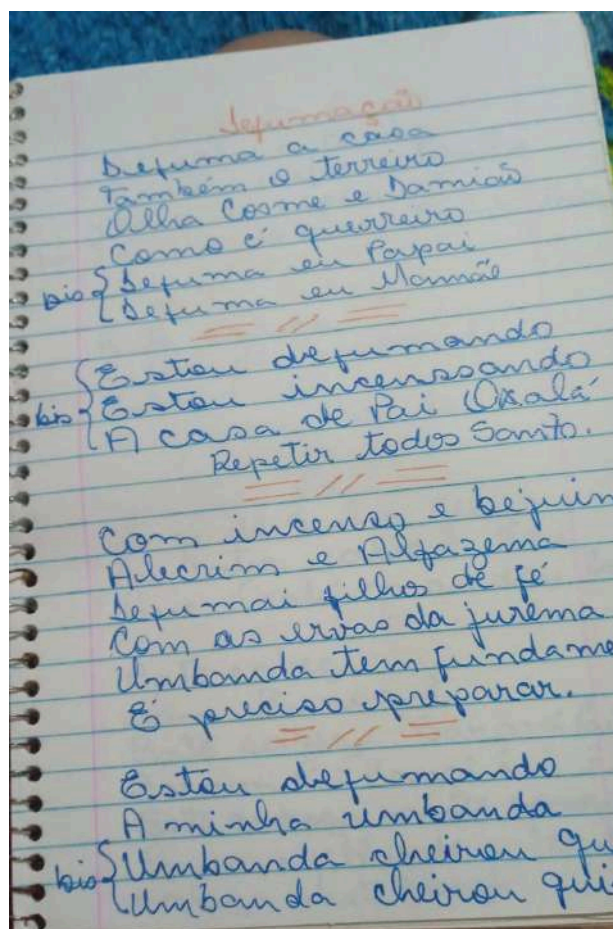 Defumação
Defuma a casa
Também o terreiro
Olha Cosme e Damião
Como é guerreiro
bis { Defuma eu Papai
Defuma eu Mamãe
= // =
Estou defumando
bis { Estou incenssando
A casa de Pai Oxalá
Repetir todos Santo.
= // =
Com incenso e bejuin
Alecrim e Alfazema
Defumai filhos de fé
Com as ervas da jurema
Umbanda tem fundame
É preciso preparar.
= // =
Estou defumando
A minha umbanda
bis { Umbanda cheirou gu
Umbanda cheirou gui